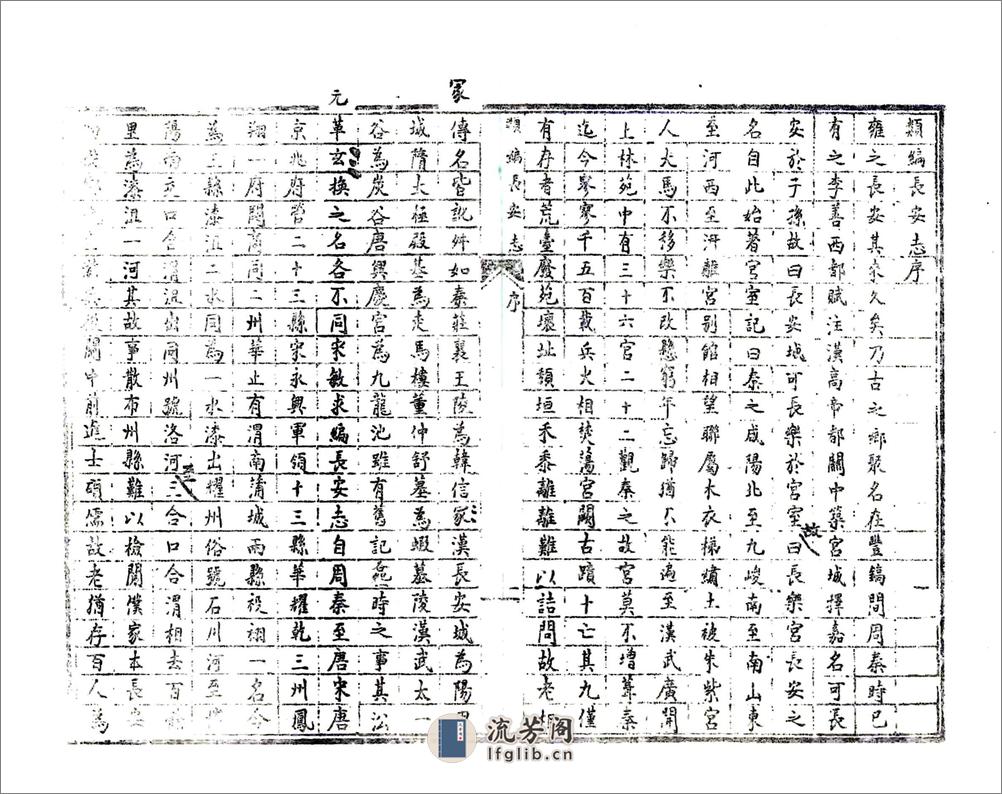 類編長安志序
雍之長安其來久矣乃古之鄉聚名在豐鎬間周秦時已
有之李善西都賦注漢高帝都關中築宮城擇嘉名可長
安於子孫故曰長安城可長樂於宮室曰長樂宮長安之
故
名自此始著宮室記曰秦之咸陽北至九嵕南至南山東
至河西至汧離宮别館相望聯屬木衣綈繡土被朱紫宮
人犬馬不移樂不改懸窮年忘歸猶不能遍至漢武廣開
上林苑中有三十六宮二十二觀秦之故宮莫不增葺秦
迄今寥寥千五百載兵火相焚蕩宮闕古蹟十亡其九僅
有存者荒臺廢苑壞址頹垣禾黍離離難以詰問故老相
類編長安志 序
冢
傳名皆訛舛如秦莊襄王陵為韓信冢漢長安城為陽甲
城隋太極殿基為走馬樓董仲舒墓為蝦蟇陵漢武太一
谷為炭谷唐興慶宮為九龍池雖有舊記一時之事其沿
元
革玄換之名各不同宋敏求編長安志自周秦至唐宋唐
京兆府管二十三縣宋永興軍領十三縣華耀乾三州鳳
翔一府開商同二州華止有渭南蒲城兩縣祋祤一名今
為三縣漆沮二水同為一水漆出耀州俗號石川河至櫟
陽南交口合渭沮出同州號洛河三合口合渭相去百餘
里為漆沮一河其故事散布州縣難以檢閱僕家本長安
關中前進士碩儒故老猶存百人為
流芳阁
lfglib.cn